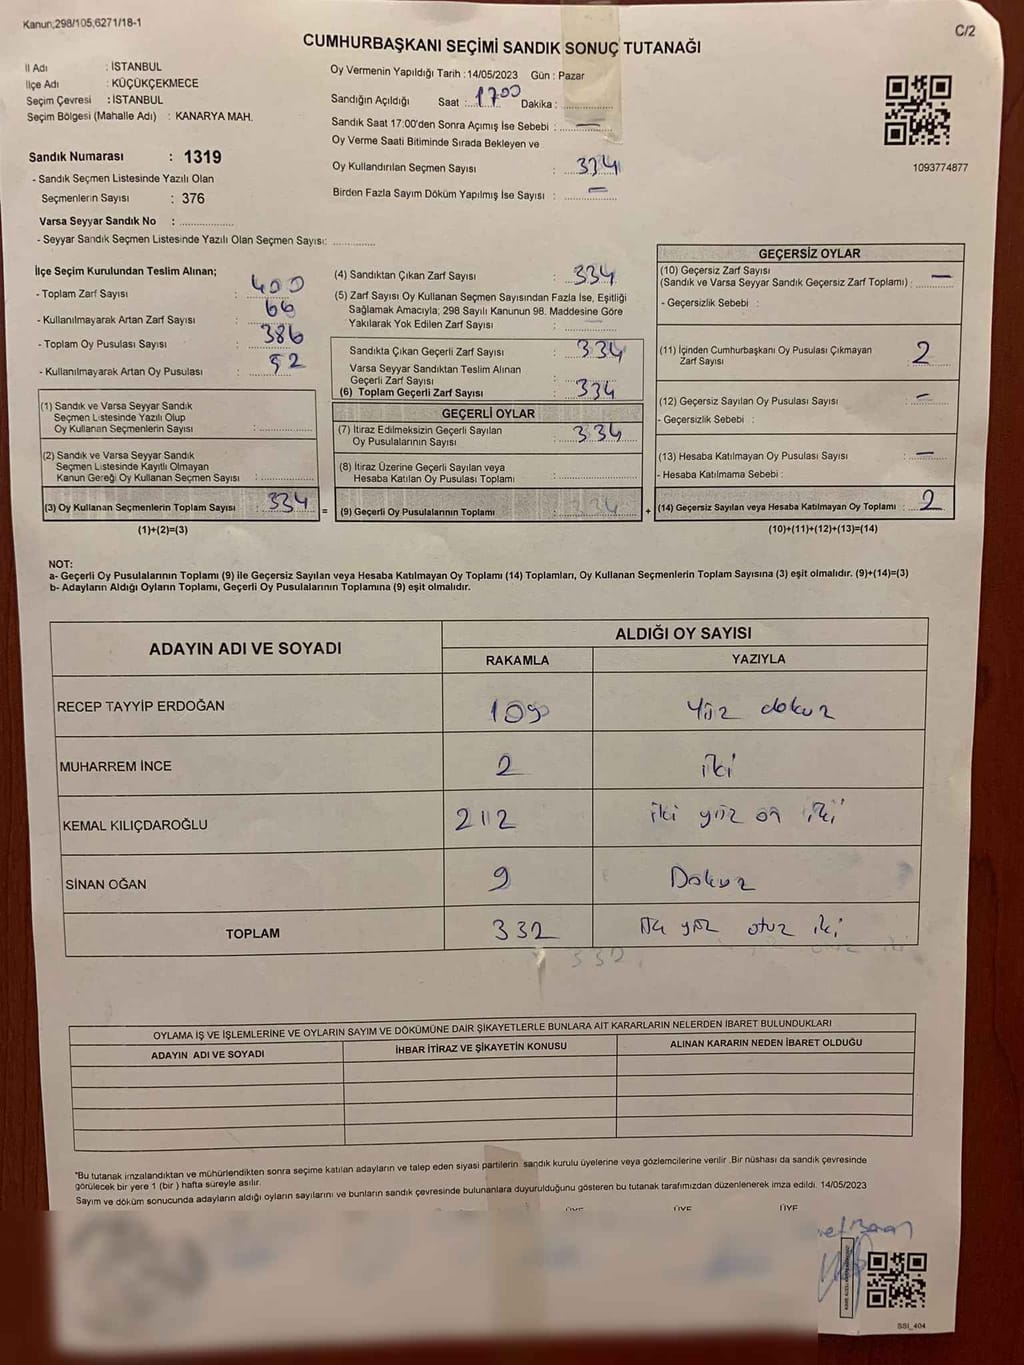 Kanun,298/105,6271/18-1
C/2
CUMHURBAŞKANI SEÇİMİ SANDIK SONUÇ TUTANAĞI
İl Adı : İSTANBUL
İlçe Adı : KÜÇÜKÇEKMECE
Seçim Çevresi : İSTANBUL
Seçim Bölgesi (Mahalle Adı) : KANARYA MAH.
Sandık Numarası : 1319
- Sandık Seçmen Listesinde Yazılı Olan
Seçmenlerin Sayısı : 376
Varsa Seyyar Sandık No :
- Seyyar Sandık Seçmen Listesinde Yazılı Olan Seçmen Sayısı:
Oy Vermenin Yapıldığı Tarih : 14/05/2023 Gün : Pazar
Sandığın Açıldığı Saat : 1700 Dakika :
Sandık Saat 17:00'den Sonra Açımış İse Sebebi : —
Oy Verme Saati Bitiminde Sırada Bekleyen ve
Oy Kullandırılan Seçmen Sayısı : 334
Birden Fazla Sayım Döküm Yapılmış İse Sayısı : —
1093774877
İlçe Seçim Kurulundan Teslim Alınan;
- Toplam Zarf Sayısı : 400
- Kullanılmayarak Artan Zarf Sayısı : 66
- Toplam Oy Pusulası Sayısı : 386
- Kullanılmayarak Artan Oy Pusulası : 52
(1) Sandık ve Varsa Seyyar Sandık
Seçmen Listesinde Yazılı Olup
Oy Kullanan Seçmenlerin Sayısı :
(2) Sandık ve Varsa Seyyar Sandık
Seçmen Listesinde Kayıtlı Olmayan
Kanun Gereği Oy Kullanan Seçmen Sayısı :
(3) Oy Kullanan Seçmenlerin Toplam Sayısı : 334 =
(1)+(2)=(3)
(4) Sandıktan Çıkan Zarf Sayısı : 334
(5) Zarf Sayısı Oy Kullanan Seçmen Sayısından Fazla İse, Eşitliği
Sağlamak Amacıyla; 298 Sayılı Kanunun 98. Maddesine Göre
Yakılarak Yok Edilen Zarf Sayısı :
Sandıkta Çıkan Geçerli Zarf Sayısı : 334
Varsa Seyyar Sandıktan Teslim Alınan
Geçerli Zarf Sayısı :
(6) Toplam Geçerli Zarf Sayısı : 334
GEÇERLİ OYLAR
(7) İtiraz Edilmeksizin Geçerli Sayılan
Oy Pusulalarının Sayısı : 334
(8) İtiraz Üzerine Geçerli Sayılan veya
Hesaba Katılan Oy Pusulası Toplamı :
(9) Geçerli Oy Pusulalarının Toplamı : 334 +
GEÇERSİZ OYLAR
(10) Geçersiz Zarf Sayısı
(Sandık ve Varsa Seyyar Sandık Geçersiz Zarf Toplamı) : —
- Geçersizlik Sebebi :
(11) İçinden Cumhurbaşkanı Oy Pusulası Çıkmayan
Zarf Sayısı : 2
(12) Geçersiz Sayılan Oy Pusulası Sayısı : —
- Geçersizlik Sebebi :
(13) Hesaba Katılmayan Oy Pusulası Sayısı : —
- Hesaba Katılmama Sebebi :
(14) Geçersiz Sayılan veya Hesaba Katılmayan Oy Toplamı : 2
(10)+(11)+(12)+(13)=(14)
NOT:
a- Geçerli Oy Pusulalarının Toplamı (9) ile Geçersiz Sayılan veya Hesaba Katılmayan Oy Toplamı (14) Toplamları, Oy Kullanan Seçmenlerin Toplam Sayısına (3) eşit olmalıdır. (9)+(14)=(3)
b- Adayların Aldığı Oyların Toplamı, Geçerli Oy Pusulalarının Toplamına (9) eşit olmalıdır.
ADAYIN ADI VE SOYADI
ALDIĞI OY SAYISI
RAKAMLA YAZIYLA
RECEP TAYYİP ERDOĞAN 109 Yüz dokuz
MUHARREM İNCE 2 iki
KEMAL KILIÇDAROĞLU 212 iki yüz on iki
SİNAN OĞAN 9 Dokuz
TOPLAM 332 yüz otuz iki
332
OYLAMA İŞ VE İŞLEMLERİNE VE OYLARIN SAYIM VE DÖKÜMÜNE DAİR ŞİKAYETLERLE BUNLARA AİT KARARLARIN NELERDEN İBARET BULUNDUKLARI
ADAYIN ADI VE SOYADI İHBAR İTİRAZ VE ŞİKAYETİN KONUSU ALINAN KARARIN NEDEN İBARET OLDUĞU
*Bu tutanak imzalandıktan ve mühürlendikten sonra seçime katılan adayların ve talep eden siyasi partilerin sandık kurulu üyelerine veya gözlemcilerine verilir .Bir nüshası da sandık çevresinde
görülecek bir yere 1 (bir ) hafta süreyle asılır.
Sayım ve döküm sonucunda adayların aldığı oyların sayılarını ve bunların sandık çevresinde bulunanlara duyurulduğunu gösteren bu tutanak tarafımızdan düzenlenerek imza edildi. 14/05/2023
ÜYE ÜYE ÜYE
SSI_404